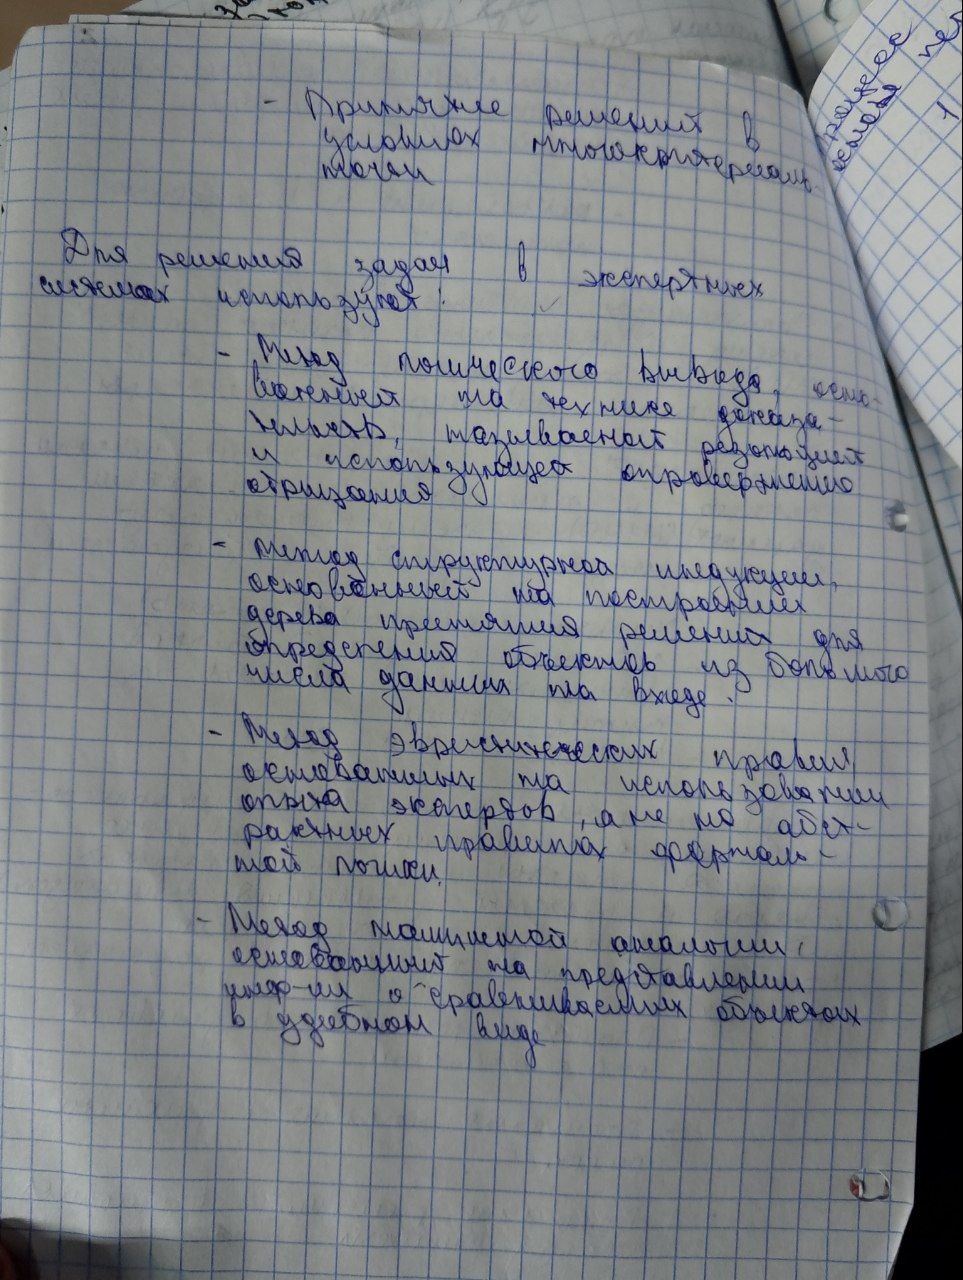 - Принятие решений в
условиях многокритериаль-
ности
Для решения задач в экспертных
системах используют:
- Метод логического вывода, осно-
ванный на технике доказа-
тельств, называемой резолюцией
и использующей опровержение
отрицания
- Метод структурной индукции,
основанный на построении
дерева принятия решений для
определения объектов из большого
числа данных на входе.
- Метод эвристических правил,
основанных на использовании
опыта экспертов, а не на абст-
рактных правилах формаль-
ной логики.
- Метод машинной аналогии,
основанный на представлении
инф-ии о сравниваемых объектах
в удобном виде